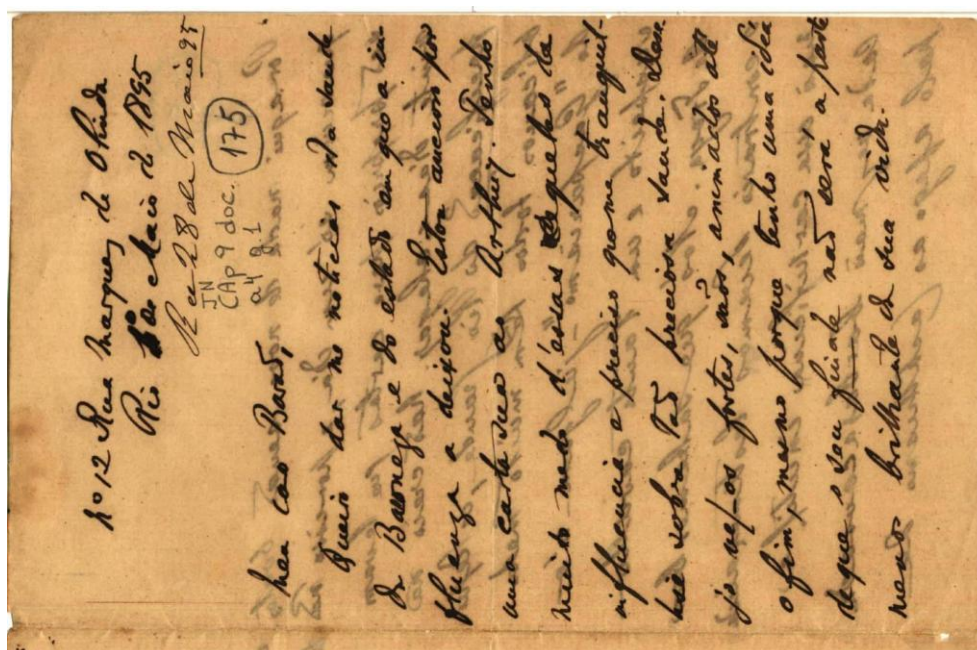 Nº 12 Rua Marquez de Olinda
Rio 1º de Maio de 1895
Rec 28 de Maio 95
JN
CAp 9 doc. 175
a4 g1
Meu caro Barão,
Queira dar-me noticias da saude
da Baroneza e do estado em que a in-
fluenza a deixou. Estou ancioso por
uma carta sua ao Arthur. Tenho
muito medo d'essas quedas da
influencia e preciso grome tranquil-
lise sobre tão preciosa saude. Dese-
jo vel-os fortes, sãos, animados até
o fim, mesmo porque tenho uma idéa
de que o seu finale não será a parte
menos brilhante de sua vida.